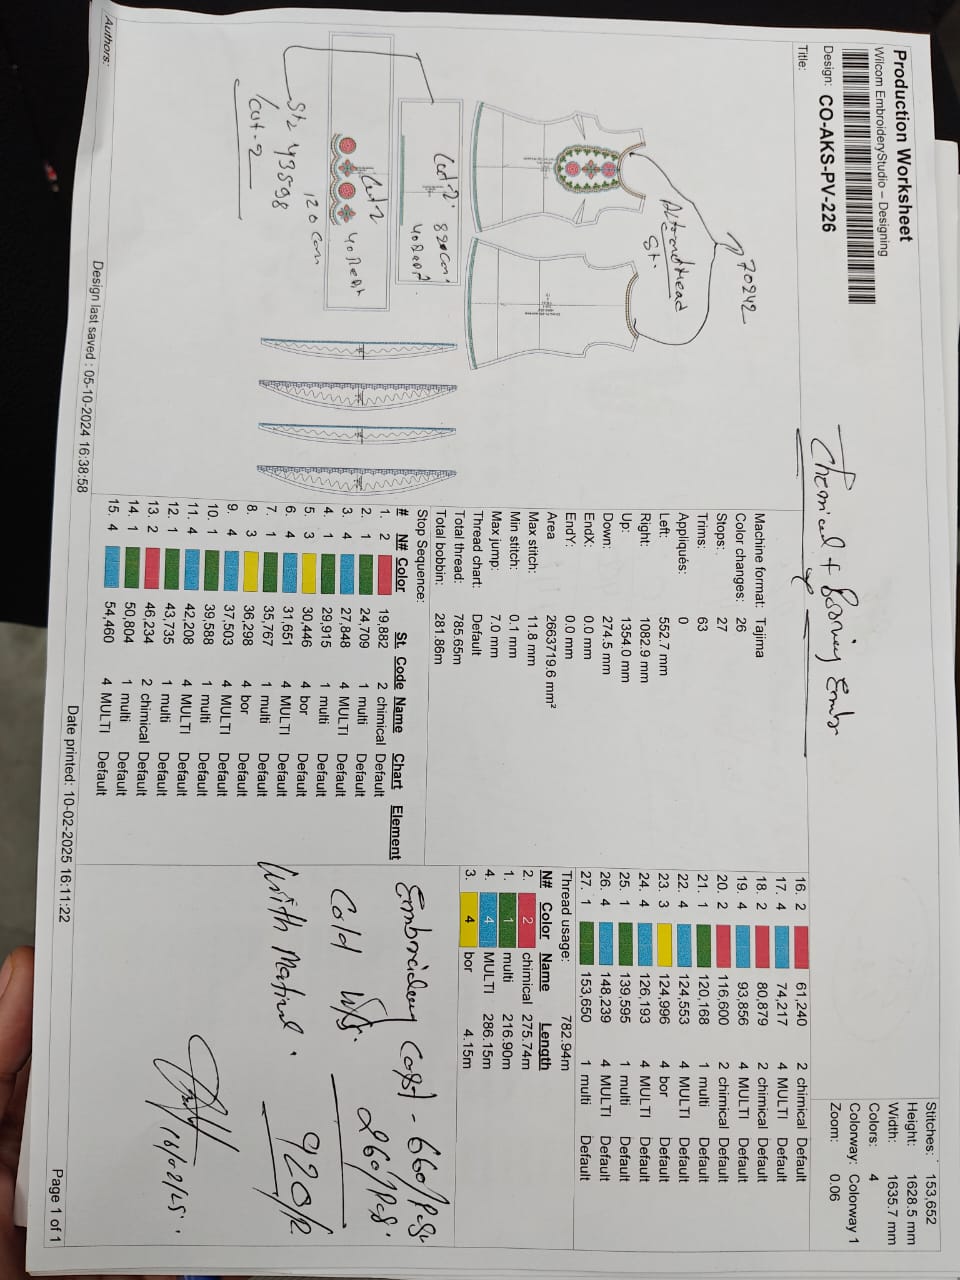 Production Worksheet
Wilcom EmbroideryStudio – Designing
Design: CO-AKS-PV-226
Title:
Stitches: 153,652
Height: 1628.5 mm
Width: 1635.7 mm
Colors: 4
Colorway: Colorway 1
Zoom: 0.06
Chemical + Emb
70242
Head
St.
Cut-2
40
Cut-2
40
120 cm
St 43598
Cut-2
Machine format: Tajima
Color changes: 26
Stops: 27
Trims: 63
Appliqués: 0
Left: 552.7 mm
Right: 1082.9 mm
Up: 1354.0 mm
Down: 274.5 mm
EndX: 0.0 mm
EndY: 0.0 mm
Area 2663719.6 mm²
Max stitch: 11.8 mm
Min stitch: 0.1 mm
Max jump: 7.0 mm
Thread chart: Default
Total thread: 785.65m
Total bobbin: 281.86m
Stop Sequence:
# N# Color St. Code Name Chart Element
1. 2 19,882 2 chimical Default
2. 1 24,709 1 multi Default
3. 4 27,848 4 MULTI Default
4. 1 29,915 1 multi Default
5. 3 30,446 4 bor Default
6. 4 31,651 4 MULTI Default
7. 1 35,767 1 multi Default
8. 3 36,298 4 bor Default
9. 4 37,503 4 MULTI Default
10. 1 39,588 1 multi Default
11. 4 42,208 4 MULTI Default
12. 1 43,735 1 multi Default
13. 2 46,234 2 chimical Default
14. 1 50,804 1 multi Default
15. 4 54,460 4 MULTI Default
16. 2 61,240 2 chimical Default
17. 4 74,217 4 MULTI Default
18. 2 80,879 2 chimical Default
19. 4 93,856 4 MULTI Default
20. 2 116,600 2 chimical Default
21. 1 120,168 1 multi Default
22. 4 124,553 4 MULTI Default
23. 3 124,996 4 bor Default
24. 4 126,193 4 MULTI Default
25. 1 139,595 1 multi Default
26. 4 148,239 4 MULTI Default
27. 1 153,650 1 multi Default
Thread usage: 782.94m
N# Color Name Length
2. 2 chimical 275.74m
1. 1 multi 216.90m
4. 4 MULTI 286.15m
3. 4 bor 4.15m
Embroidery Cost - 660/Pcs
Cold 260/Pcs.
With 920/R
Authors:
Design last saved : 05-10-2024 16:38:58
Date printed: 10-02-2025 16:11:22
Page 1 of 1